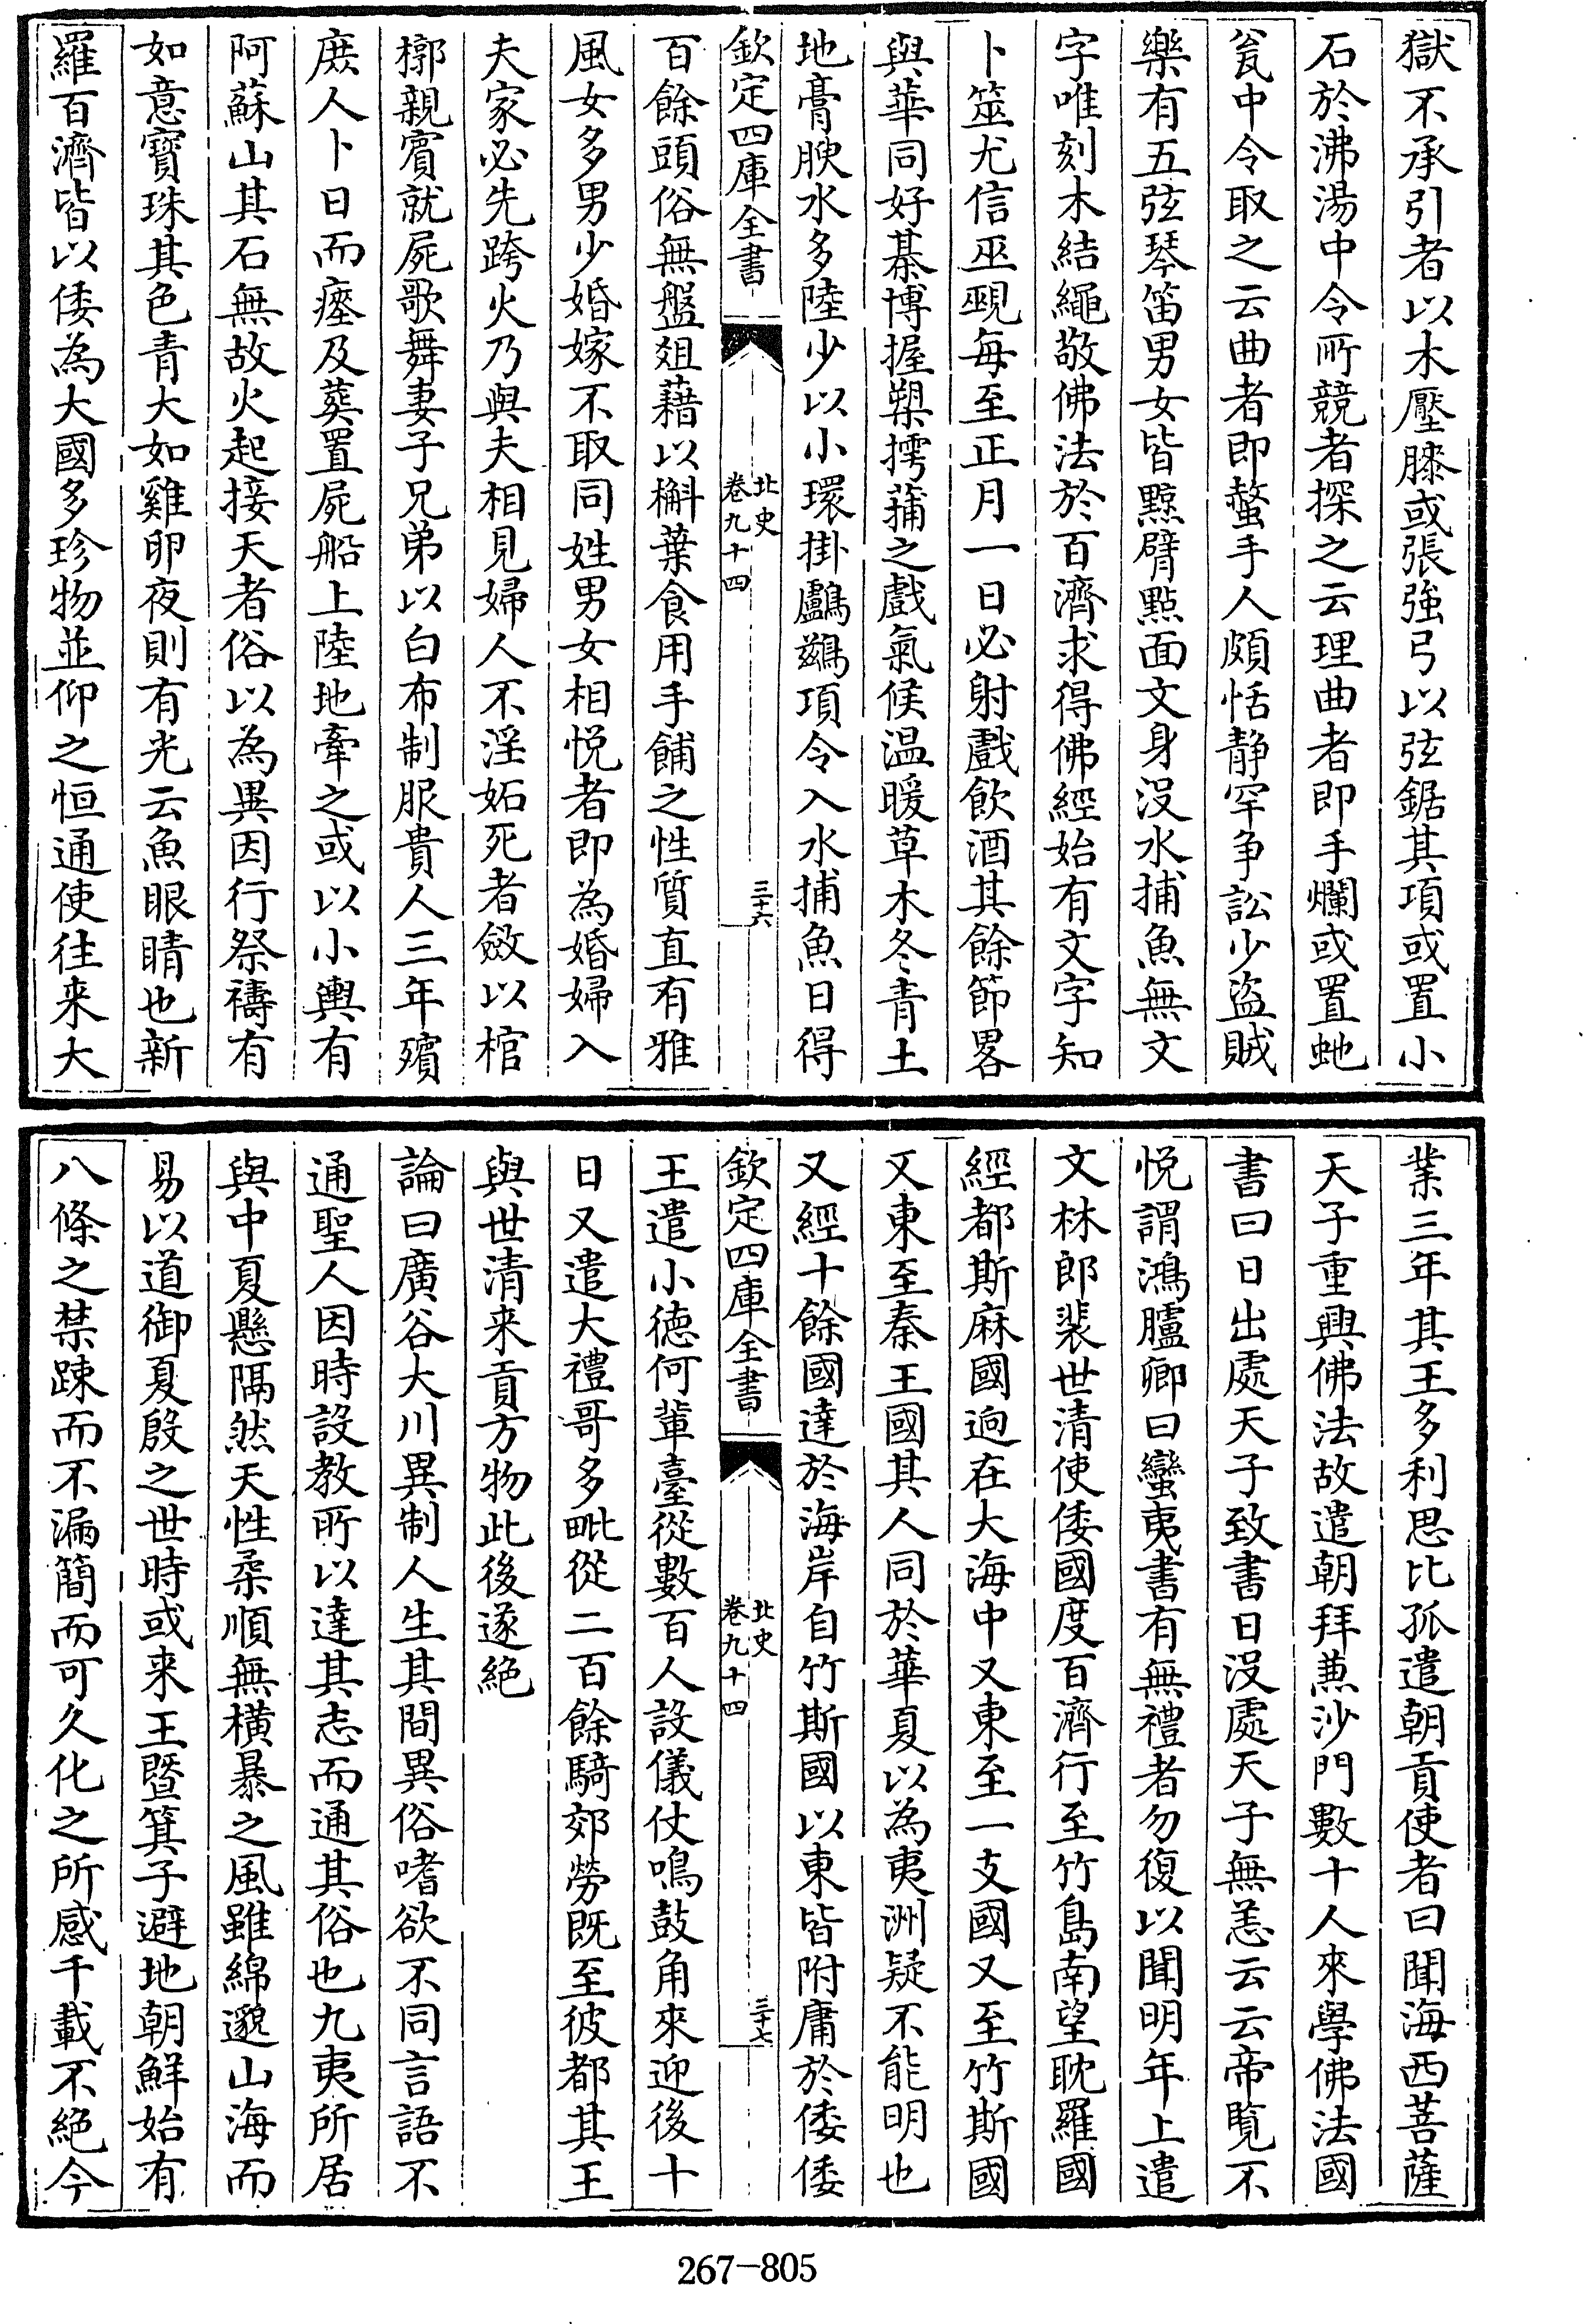 獄不承引者以木壓膝或張強弓以弦鋸其項或置小
石於沸湯中令所競者探之云理曲者即手爛或置虵
瓮中令取之云曲者即螫手人頗恬静罕争訟少盗賊
樂有五弦琴笛男女皆黥臂點面文身没水捕魚無文
字唯刻木結繩敬佛法於百濟求得佛經始有文字知
卜筮尤信巫覡每至正月一日必射戲飲酒其餘節畧
與華同好棊博握槊摴蒱之戲氣候温暖草木冬青土
地膏腴水多陸少以小環掛鸕鷀項令入水捕魚日得
欽定四庫全書
北史
卷九十四
三十六
百餘頭俗無盤爼藉以槲葉食用手餔之性質直有雅
風女多男少婚嫁不取同姓男女相悅者即為婚婦入
夫家必先跨火乃與夫相見婦人不淫妬死者斂以棺
槨親賓就屍歌舞妻子兄弟以白布制服貴人三年殯
庶人卜日而瘞及葬置屍船上陸地牽之或以小輿有
阿蘇山其石無故火起接天者俗以為異因行祭禱有
如意寶珠其色青大如雞卵夜則有光云魚眼睛也新
羅百濟皆以倭為大國多珍物並仰之恒通使往来大
業三年其王多利思比孤遣朝貢使者曰聞海西菩薩
天子重興佛法故遣朝拜兼沙門數十人來學佛法國
書曰日出處天子致書日没處天子無恙云云帝覧不
悦謂鴻臚卿曰蠻夷書有無禮者勿復以聞明年上遣
文林郎裴世清使倭國度百濟行至竹島南望耽羅國
經都斯麻國逈在大海中又東至一支國又至竹斯國
又東至秦王國其人同於華夏以為夷洲疑不能明也
又經十餘國達於海岸自竹斯國以東皆附庸於倭倭
欽定四庫全書
北史
卷九十四
三十七
王遣小徳何輩臺從數百人設儀仗鳴鼓角來迎後十
日又遣大禮哥多毗從二百餘騎郊勞既至彼都其王
與世清来貢方物此後遂絶
論曰廣谷大川異制人生其間異俗嗜欲不同言語不
通聖人因時設教所以達其志而通其俗也九夷所居
與中夏懸隔然天性柔順無横暴之風雖綿邈山海而
易以道御夏殷之世時或来王暨箕子避地朝鮮始有
八條之禁踈而不漏簡而可久化之所感千載不絶今
267-805